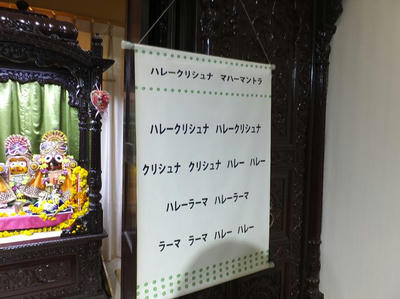 ハレークリシュナ マハーマントラ
ハレークリシュナ ハレークリシュナ
クリシュナ クリシュナ ハレー ハレー
ハレーラーマ ハレーラーマ
ラーマ ラーマ ハレー ハレー